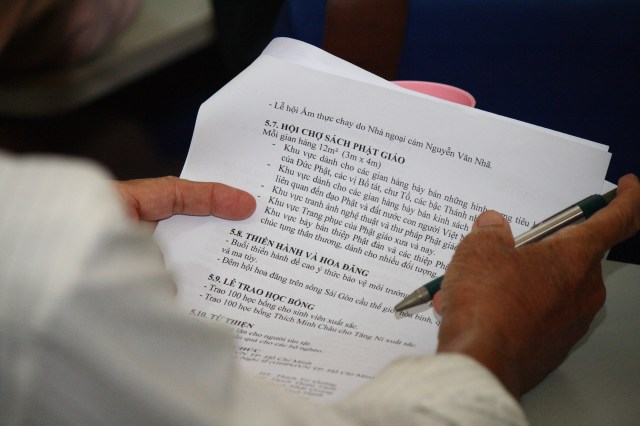 - Lễ hội Ẩm thực chay do Nhà ngoại cảm Nguyễn Văn Nhã.
5.7. HỘI CHỢ SÁCH PHẬT GIÁO
Mỗi gian hàng 12m² (3m x 4m)
- Khu vực dành cho các gian hàng bày bán những hình tượng tiêu
của Đức Phật, các vị Bồ tát, chư Tổ, các bậc Thánh
- Khu vực dành cho các gian hàng bày bán kinh sách
liên quan đến đạo Phật và đất nước con người Việt
- Khu vực tranh ảnh nghệ thuật và thư pháp Phật
- Khu vực Trang phục của Phật giáo xưa và nay.
- Khu vực bày bán thiệp Phật đản và các thiệp
chúc tụng thân thương, dành cho nhiều đối tượng
5.8. THIỀN HÀNH VÀ HOA ĐĂNG
- Buổi thiền hành để cao ý thức bảo vệ môi trường
và ma túy.
- Đêm hội hoa đăng trên sông Sài Gòn cầu thế giới hòa bình,
5.9. LỄ TRAO HỌC BỔNG
- Trao 100 học bổng cho sinh viên xuất sắc.
- Trao 100 học bổng Thích Minh Châu cho Tăng Ni xuất sắc.
5.10. TỪ THIỆN
cho người tàn tật
quà cho các hộ nghèo.